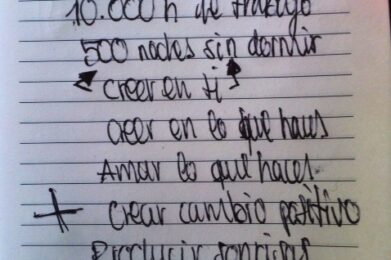 10.000 h de trabajo
500 noches sin dormir
< creer en ti >
creer en lo que haces
Amar lo que haces
+ crear cambio positivo
Producir sonrisas